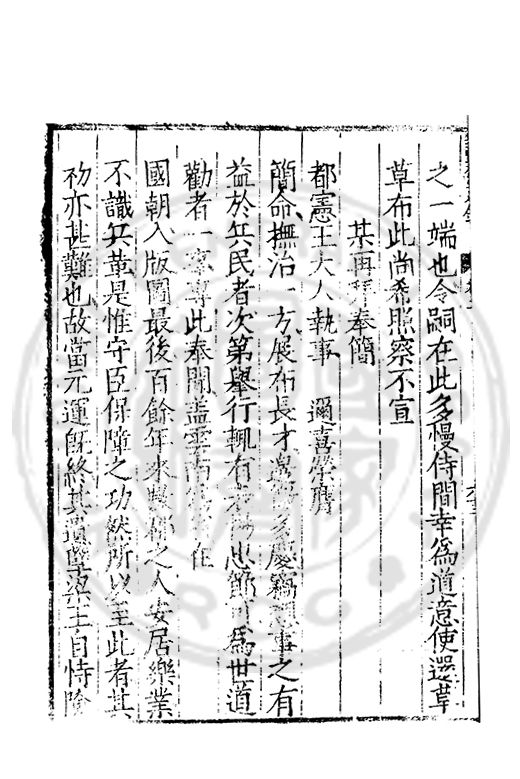 之一端也令嗣在此多慢侍間幸為道意使還草
草布此尚希照察不宣
某再拜奉簡
都憲王大人執事 邇喜榮膺
簡命撫治一方展布長才邊多慶竊思事之有
益於兵民者次第舉行輒有忠節可為世道
勸者一案專此奉聞蓋雲南在
國朝入版圖最後百餘年來之人安居樂業
不識兵革是惟守臣保障之功然所以至此者其
初亦甚難也故當元運既終其遺孽梁王自恃險